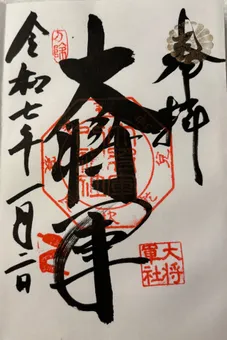 奉拝
方除
大将軍
大将
軍社
令和七年一月二日